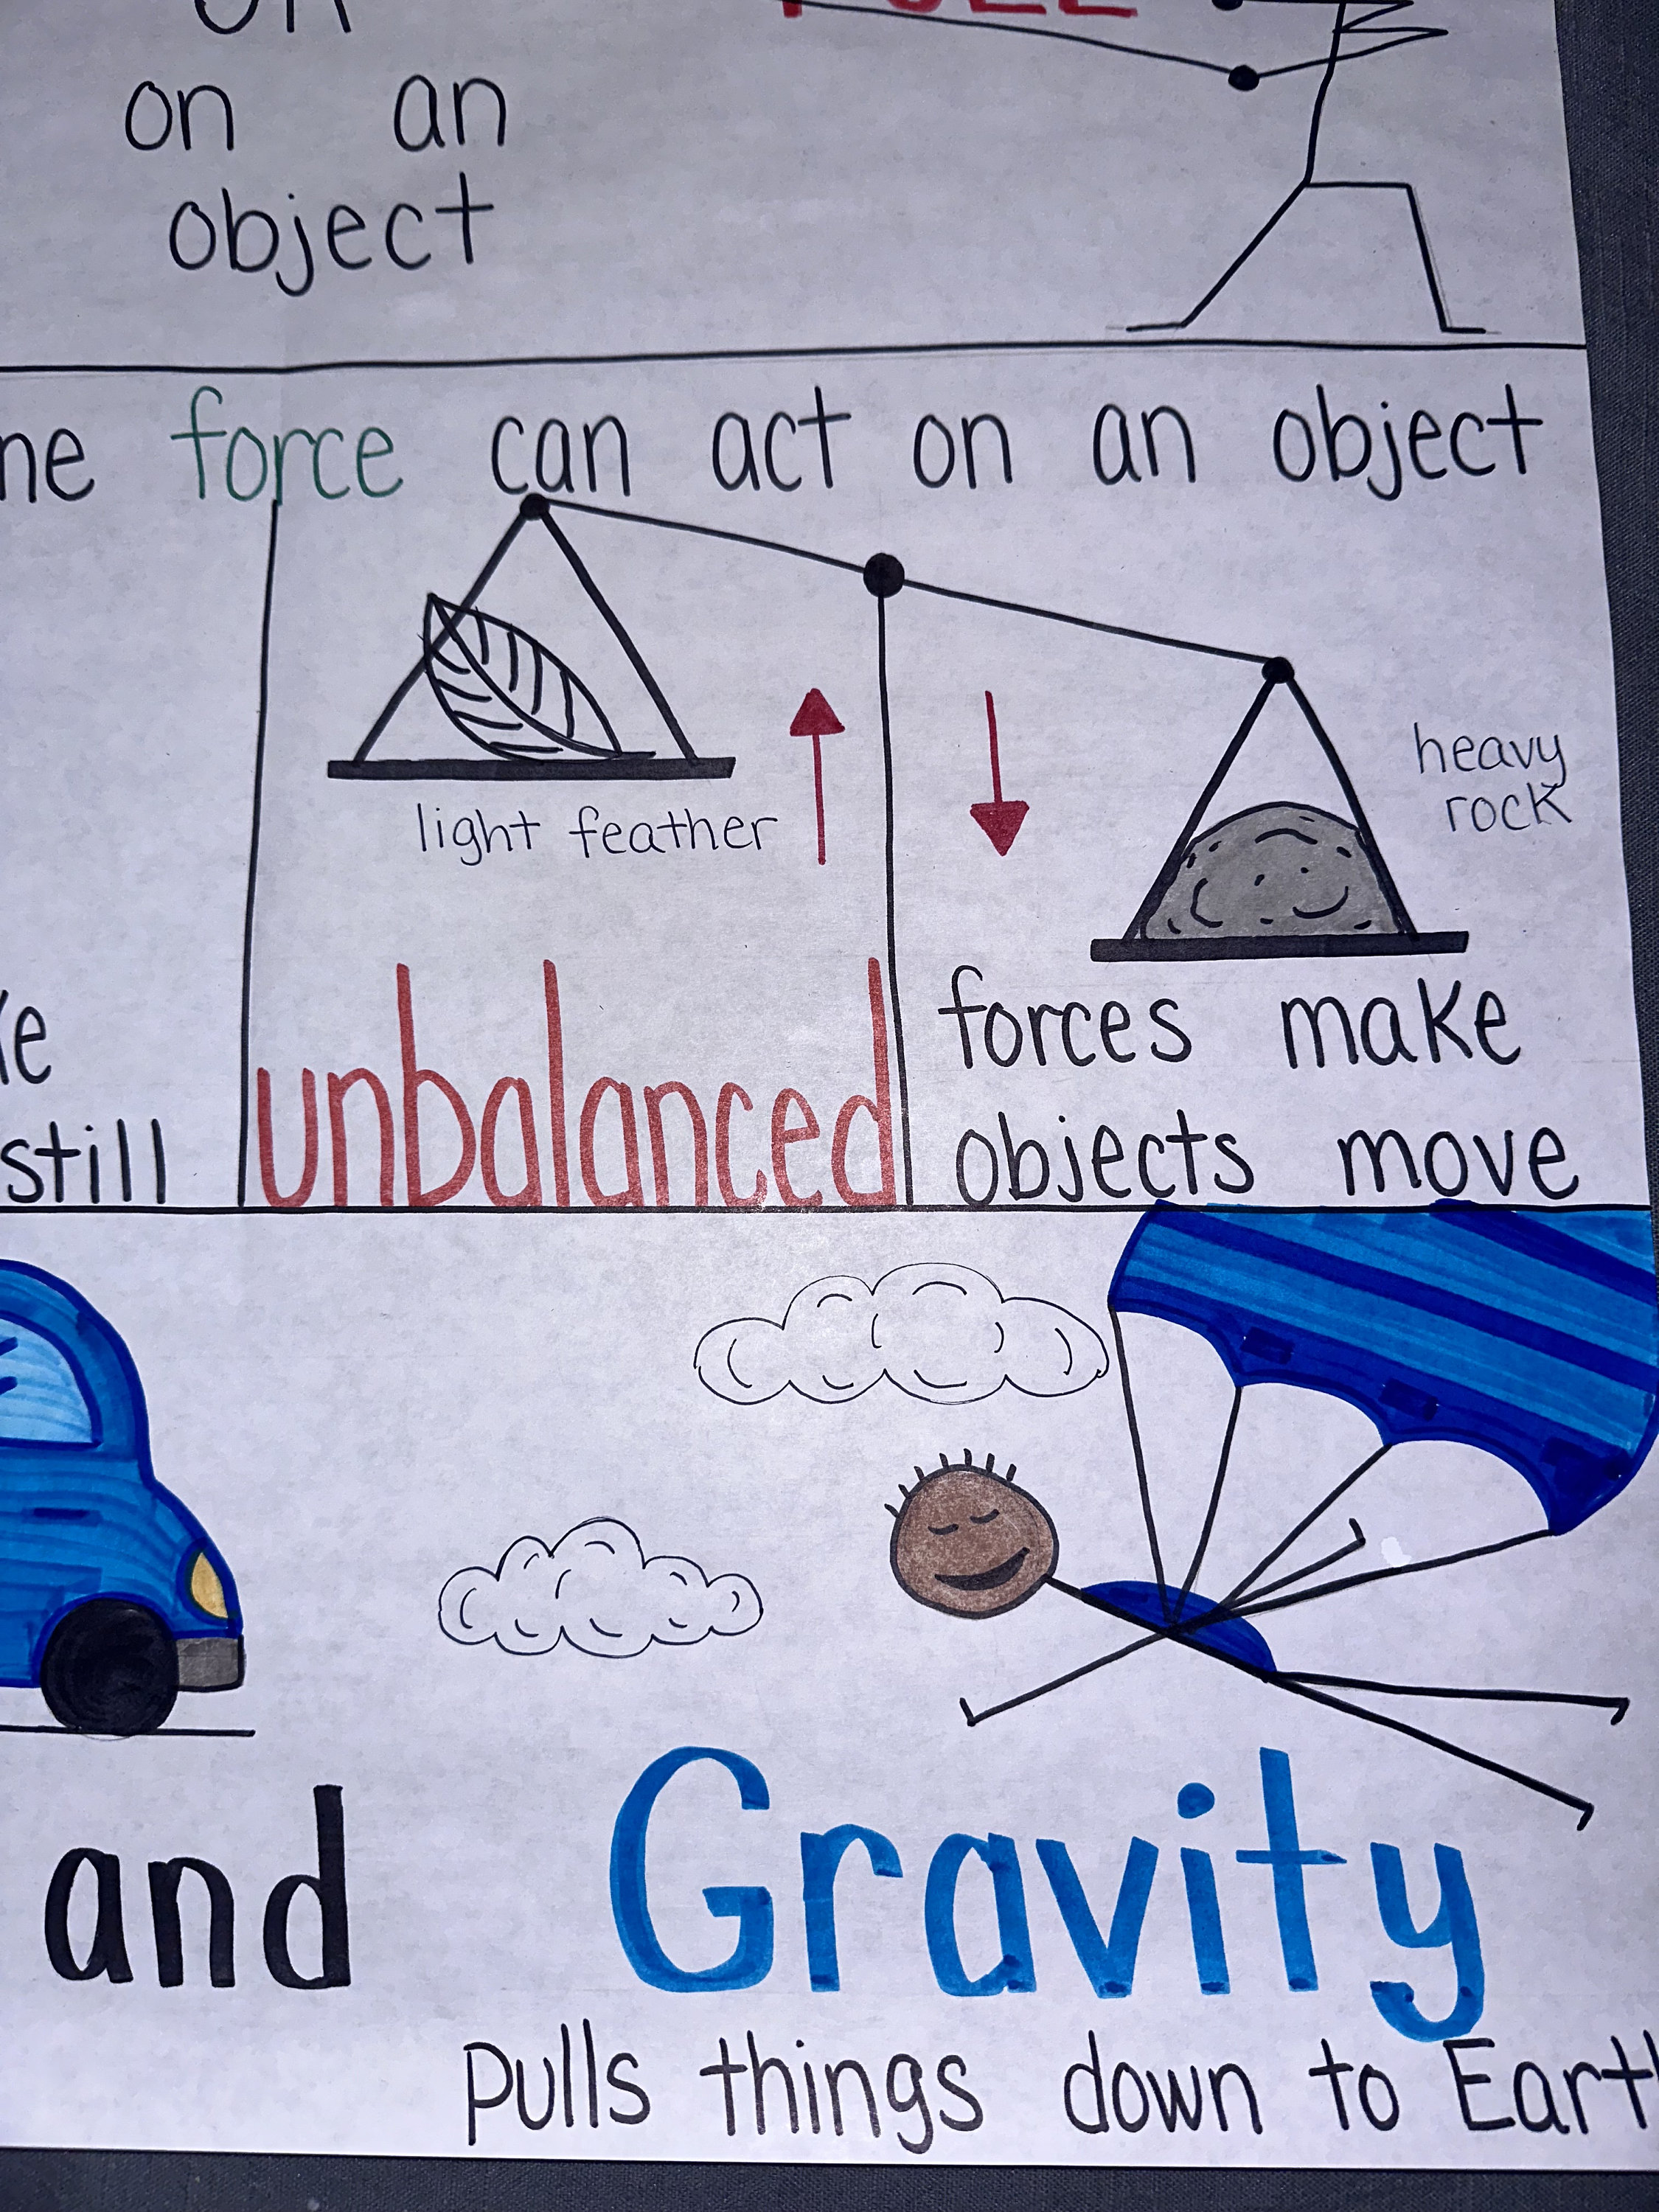 on an
object
force can act on an object
light feather
heavy
rock
still
unbalanced
forces make
objects move
and Gravity
pulls things down to